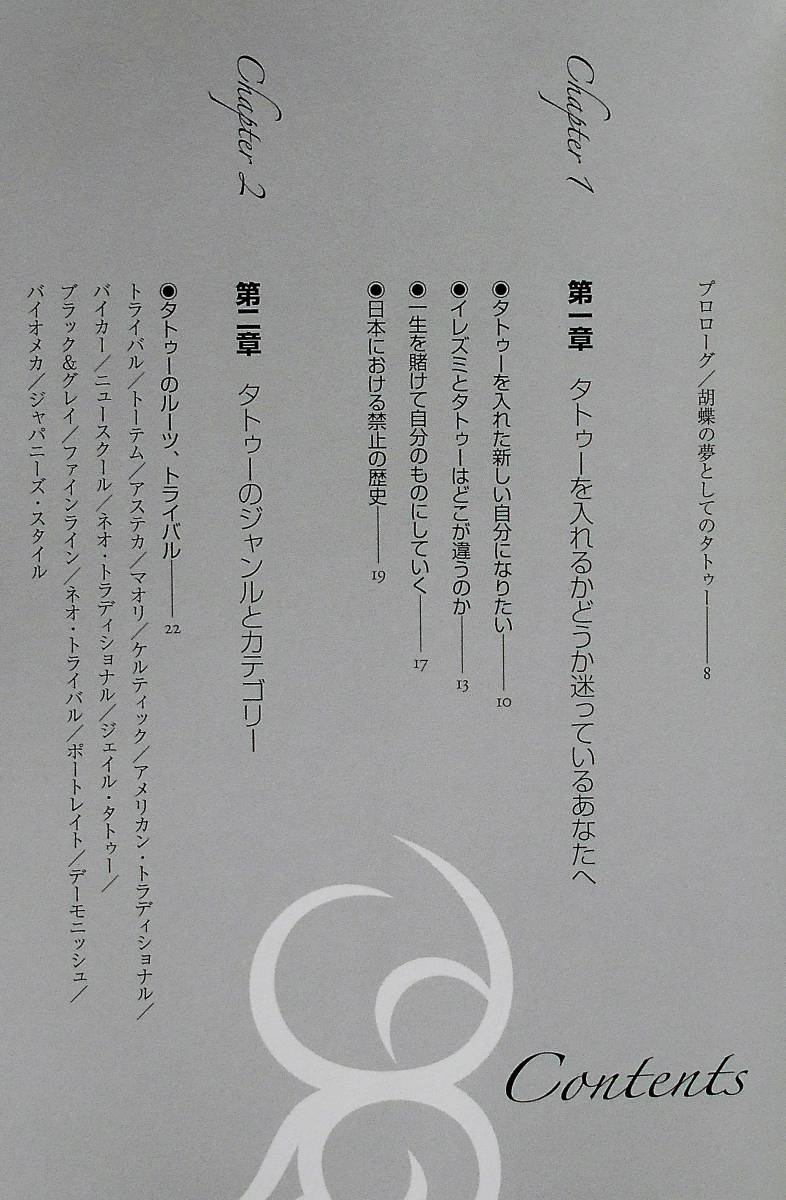 Contents
プロローグ／胡蝶の夢としてのタトゥー――8
Chapter 1
第一章 タトゥーを入れるかどうか迷っているあなたへ
◉タトゥーを入れた新しい自分になりたい――10
◉イレズミとタトゥーはどこが違うのか――13
◉一生を賭けて自分のものにしていく――17
◉日本における禁止の歴史――19
Chapter 2
第二章 タトゥーのジャンルとカテゴリー
◉タトゥーのルーツ、トライバル――22
トライバル／トーテム／アステカ／マオリ／ケルティック／アメリカン・トラディショナル／
バイカー／ニュースクール／ネオ・トラディショナル／ジェイル・タトゥー／
ブラック&グレイ／ファインライン／ネオ・トライバル／ポートレイト／デーモニッシュ／
バイオメカ／ジャパニーズ・スタイル